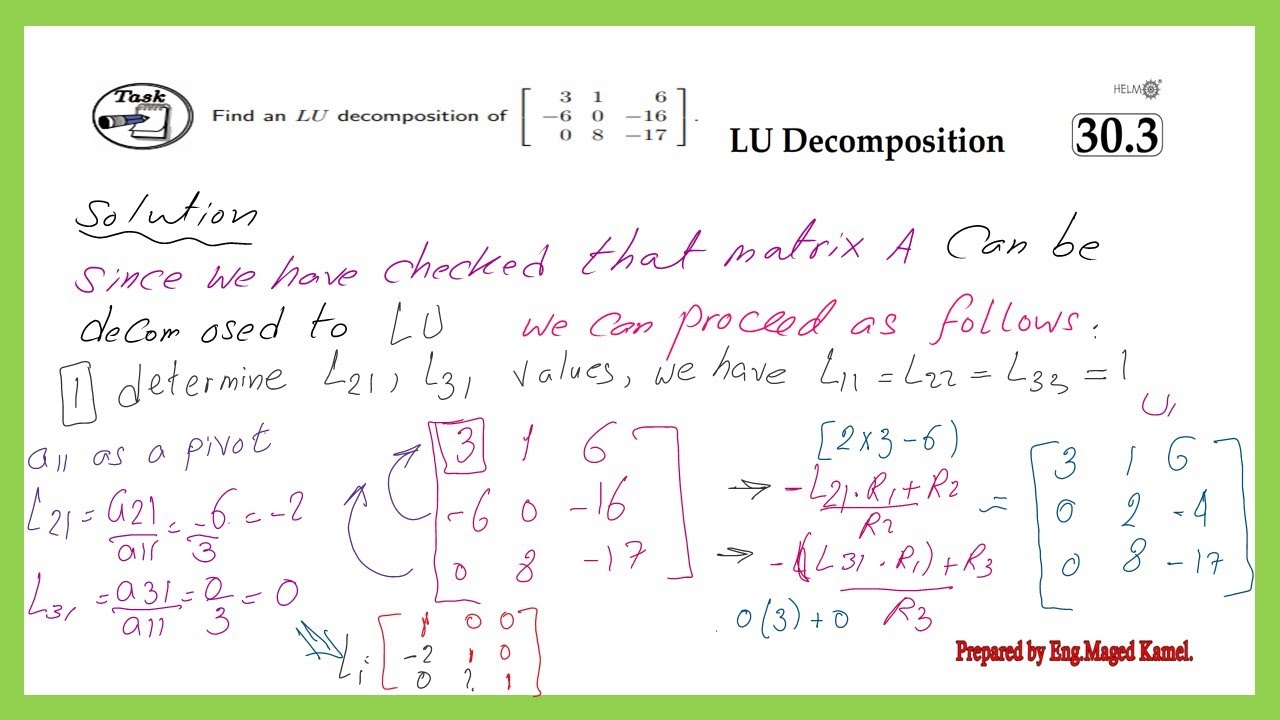 Task
Find an LU decomposition of [ 3 1 6
−6 0 −16
0 8 −17 ] .
HELM
LU Decomposition 30.3
Solution
since we have checked that matrix A can be
decom osed to LU we can proceed as follows:
1 determine L21, L31 values, we have L11 = L22 = L33 = 1
U1
a11 as a pivot
L21 = a21/a11 = -6/3 = -2
L31 = a31/a11 = 0/3 = 0
3 1 6
-6 0 -16
0 8 -17
[2x3-6)
→ -L21.R1+R2
R2
→ -(L31.R1)+R3
R3
0(3)+0
=
3 1 6
0 2 -4
0 8 -17
Li
1 0 0
-2 1 0
0 ? 1
Prepared by Eng.Maged Kamel.